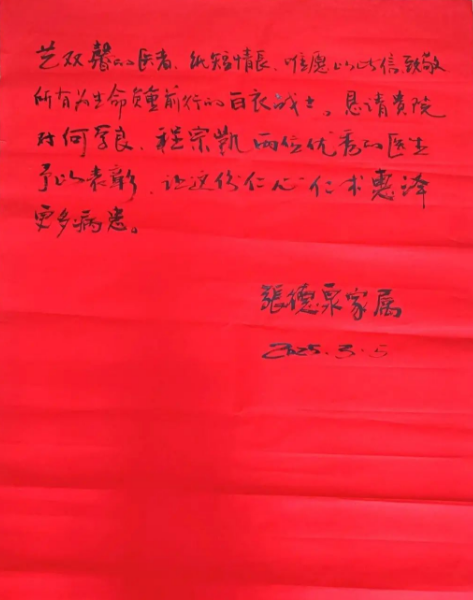 艺双馨的医者、纸短情长、惟愿以此信致敬
所有为生命负重前行的白衣战士。恳请贵院
对何学良、程宗凯两位优秀的医生
予以表彰、让这份仁心仁术惠泽
更多病患。
張德泉家属
2025.3.5